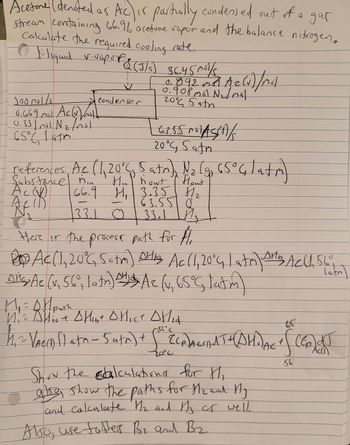 Acetone (denoted as Ac) is partially condensed out of a gas
stream containing 66.9% acetone vapor and the balance nitrogen.
Calculate the required cooling rate.
l-liquid v-vapor
Q (J/s) 36.45 mol/s
0.092 mol Ac(v)/mol
0.908 mol N2/mol
20°C, 5 atm
100 mol/s
0.669 mol Ac(v)/mol
0.331 mol N2/mol
65°C, 1 atm
condenser
63.55 mol Ac(l)/s
20°C, 5 atm
references Ac (l, 20°C, 5 atm), N2 (g, 65°C, 1 atm)
Substance nin Hin nout Hout
Ac (v) 66.9 H1 3.35 H2
Ac (l) — — 63.55 0
N2 33.1 0 33.1 H3
Here is the process path for H1
Ac (l, 20°C, 5 atm) ΔH1a→ Ac (l, 20°C, 1 atm) ΔH1b→ Ac (l, 56°, 1 atm)
ΔH1c→ Ac (v, 56°, 1 atm) ΔH1d→ Ac (v, 65°C, 1 atm)
H1 = ΔHpath
H1 = ΔH1a + ΔH1b + ΔH1c + ΔH1d
H1 = VAc(l) (1 atm - 5 atm) + ∫ 20°C 56°C [Cp]Ac(l) dT + (ΔHv)Ac + ∫ 56 65 (Cp)Ac(v) dT
Show the calculations for H1
also show the paths for H2 and H3
and calculate H2 and H3 as well
Also, use tables B1 and B2